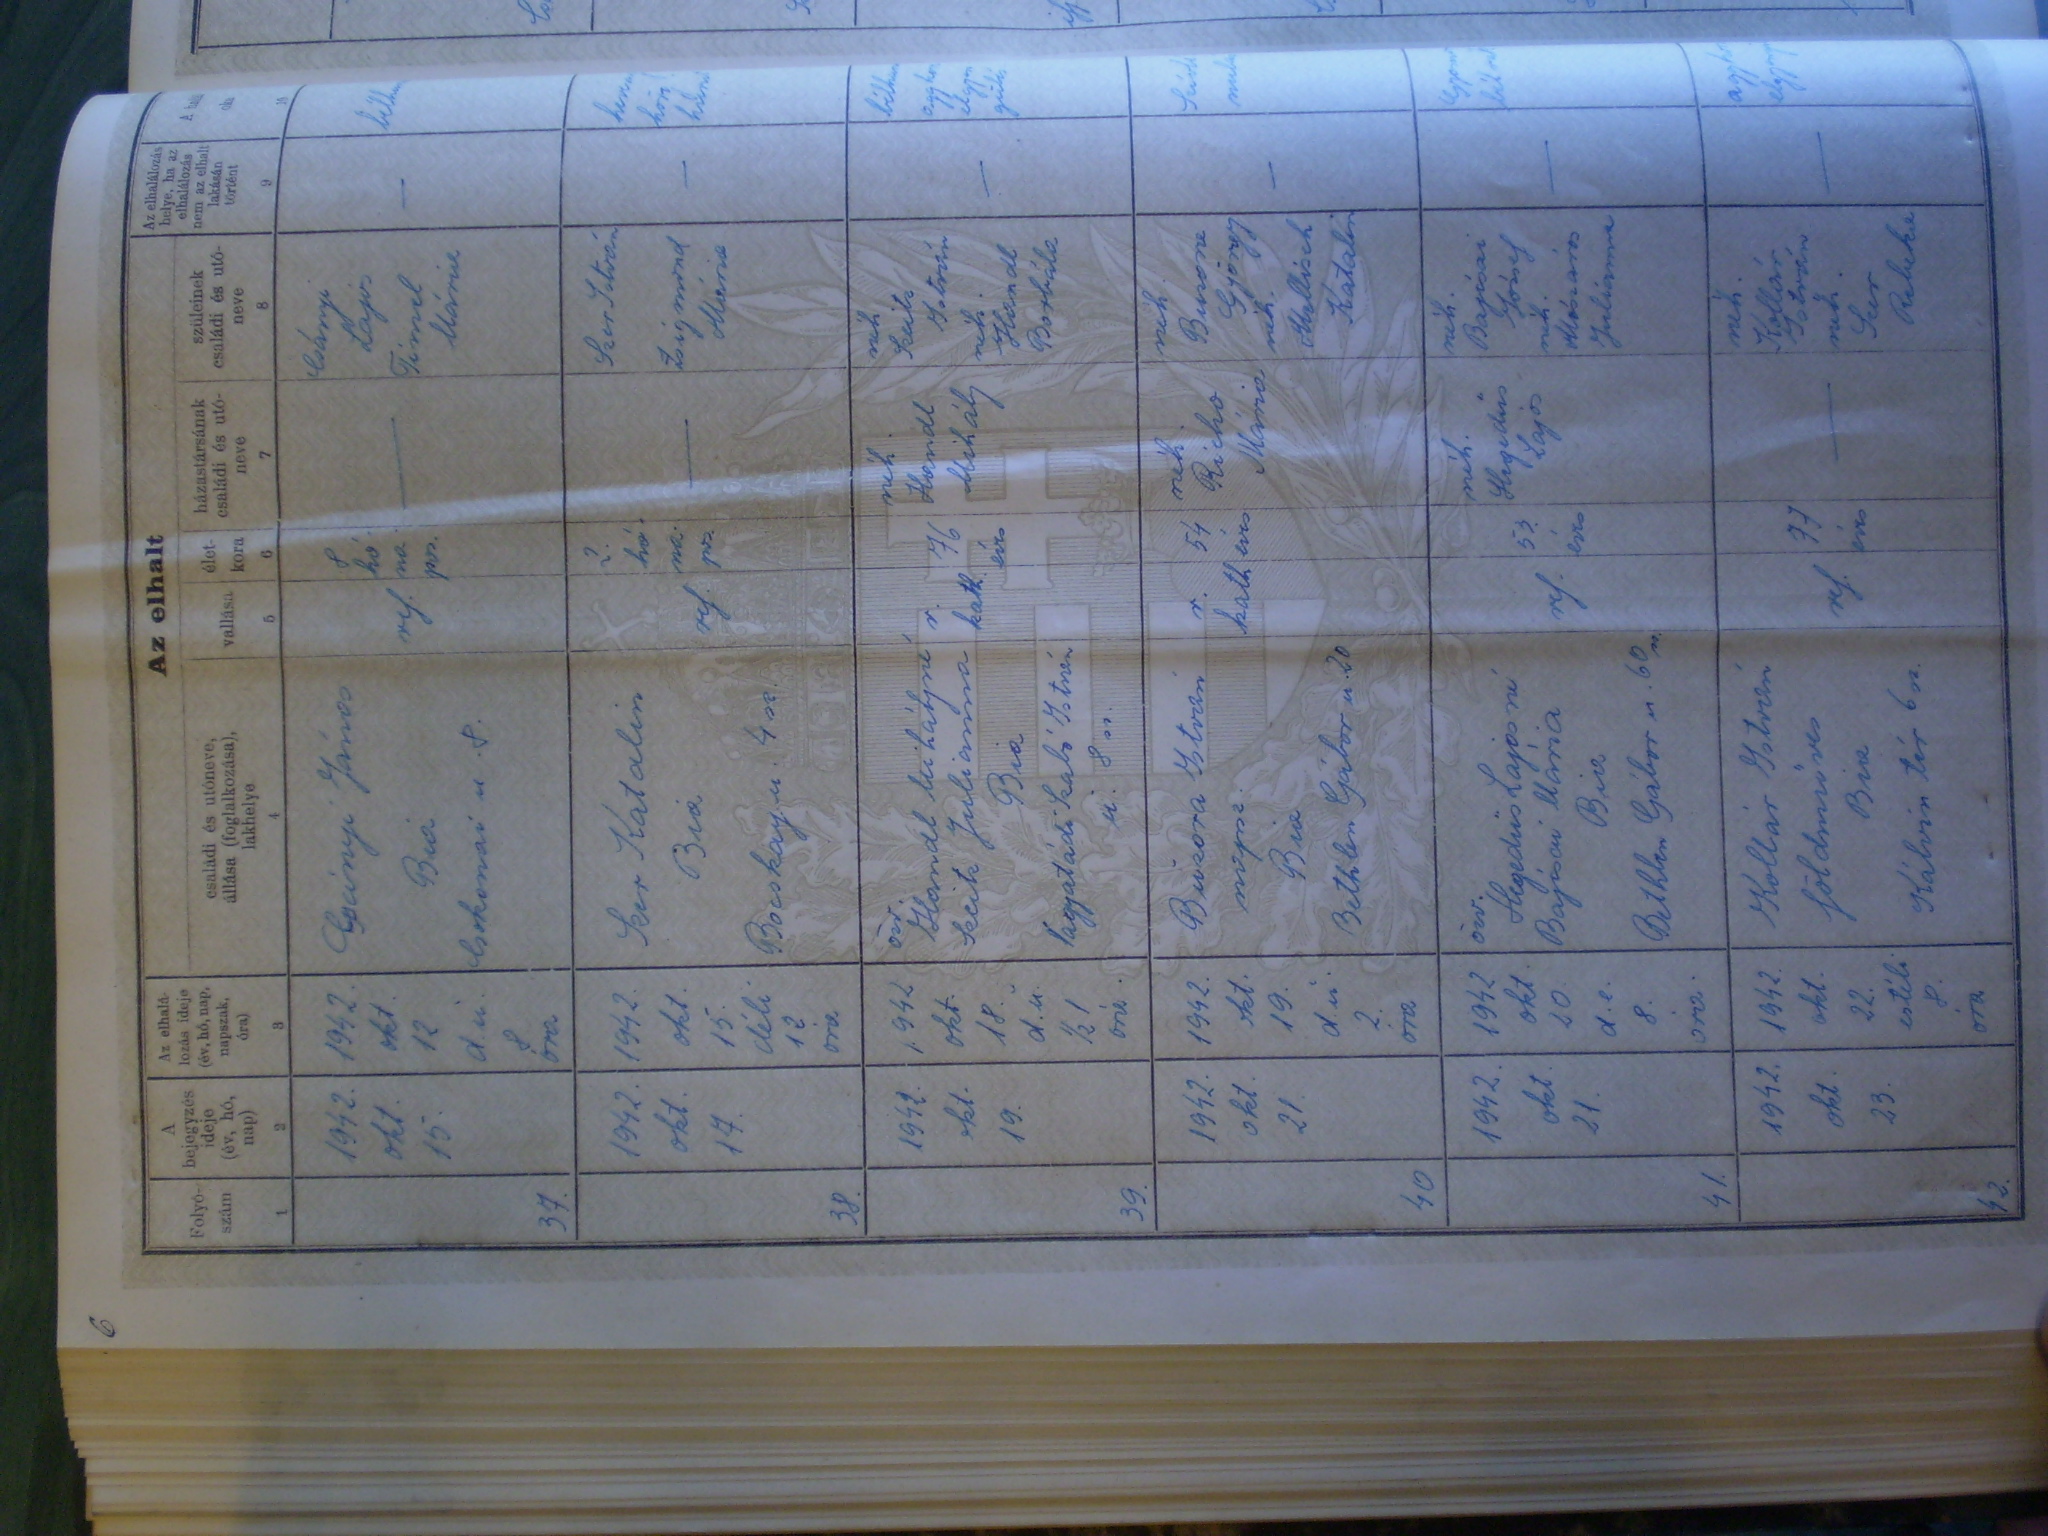 6
Az elhalt
Folyó-
szám
1
A
bejegyzés
ideje
(év, hó,
nap)
2
Az elhalá-
lozás ideje
(év, hó, nap,
napszak,
óra)
3
családi és utóneve,
állása (foglalkozása),
lakhelye
4
vallása
5
élet-
kora
6
házastársának
családi és utó-
neve
7
szüleinek
családi és utó-
neve
8
Az elhalálozás
helye, ha az
elhalálozás
nem az elhalt
lakásán
történt
9
A halál
oka
37.
1942.
okt.
15.
1942.
okt.
12
d.u.
8
óra
Csányi János
Bia
Csokonai u 8.
ref.
8
hó-
na-
pos.
—
Csányi
Lajos
Timel
Mária
—
38.
1942.
okt.
17.
1942.
okt.
15.
déli
12
óra
Szer Katalin
Bia
Bocskay u. 4 sz.
ref.
2.
hó-
na-
pos
—
Szer István
Zsigmond
Mária
—
39.
1942.
okt.
19.
1942
okt.
18.
d.u.
½ 1
óra.
özv.
Handl Mihályné
Julianna
Bia
István
u. 8 sz.
r.
kath.
76
éves
néh.
Handl
Mihály
néh.
István
néh.
Handl
Borbála
—
40
1942.
okt.
21.
1942.
okt.
19.
d.u.
2.
óra
István
Bia
Bethlen Gábor u. 20
r.
kath
54
éves
néh.
Richo
Mária
néh.
György
néh.
Katalin
—
41.
1942.
okt.
21.
1942
okt.
20.
d.e.
8.
óra.
özv.
Hegedüs Lajosné
Mária
Bia
Bethlen Gábor u. 60
ref.
53.
éves
néh.
Hegedüs
Lajos
néh.
József
néh.
Mészáros
Julianna
—
42.
1942.
okt.
23.
1942
okt.
22.
estéli
8.
óra
Kollár István
földmüves
Bia
Kálvin tér 6 sz.
ref.
77
éves
—
néh.
Kollár
István
néh.
Szer
Rebeka
—